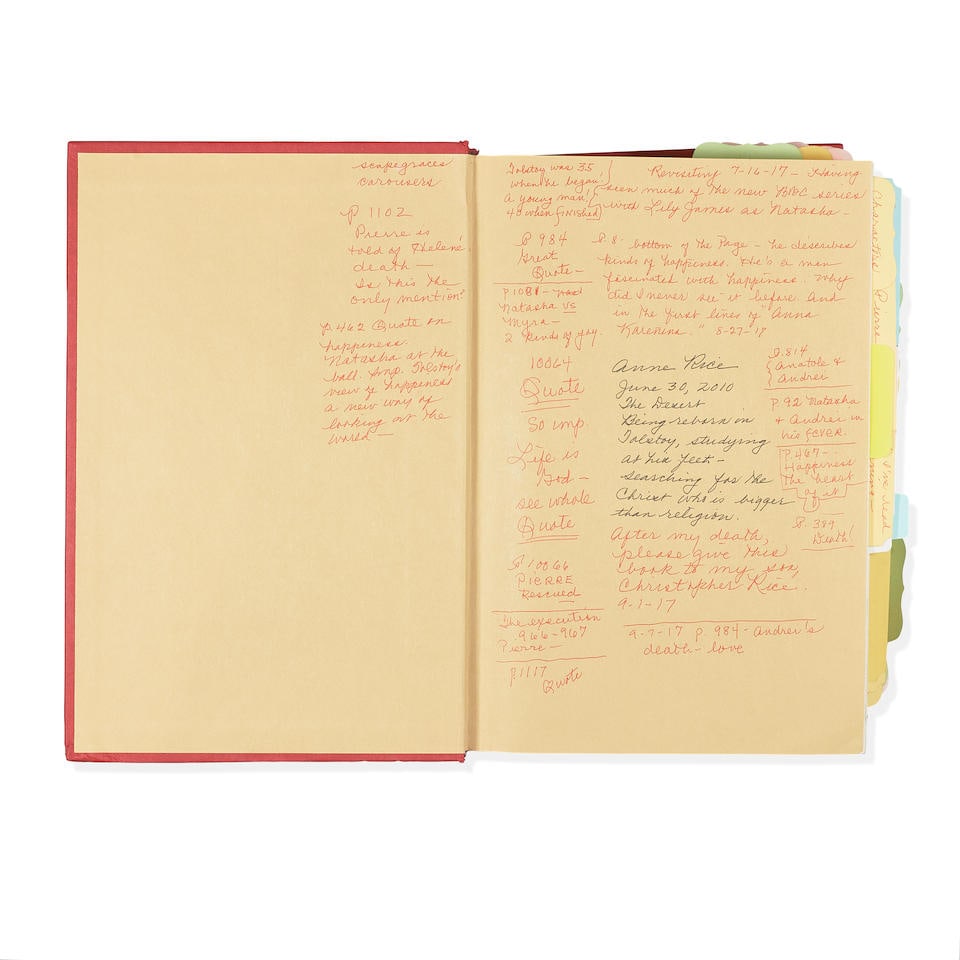 scapegraces
carousers
p 1102
Pierre is
told of Helene
death —
Is this the
only mention?
p. 462 Quote on
happiness.
Natasha at the
ball. Imp. Tolstoy's
view of happiness
a new way of
looking at the
world —
Tolstoy was 35
when he began!
A young man!
40 when FINISHED
P 984
Great
Quote —
Natasha vs
Myra —
2 kinds of joy.
10064
Quote
So imp.
Life is
God —
see whole
Quote
P 10066
PIERRE
Rescued
The execution
966-967
Pierre —
p. 1117
Quote
Revisiting 7-16-17 — Having
seen much of the new BBC series
with Lily James as Natasha —
P. 8. bottom of the Page — he describes
kinds of happiness. He's a man
fascinated with happiness. Why
did I never see it before. And
in the first lines of "Anna
Karenina." 8-27-17
Anne Rice
June 30, 2010
The Desert
Being reborn in
Tolstoy, studying
at his feet —
searching for the
Christ who is bigger
than religion.
After my death,
please give this
book to my son,
Christopher Rice.
9-1-17
9-7-17 p. 984 - Andrei's
death - love
P. 814
Anatole &
Andrei
P. 92 Natasha
+ Andrei in
his FEVER.
P. 467 —
Happiness
The heart
of it
P. 389
Death!
Characters
Pierre
I've read